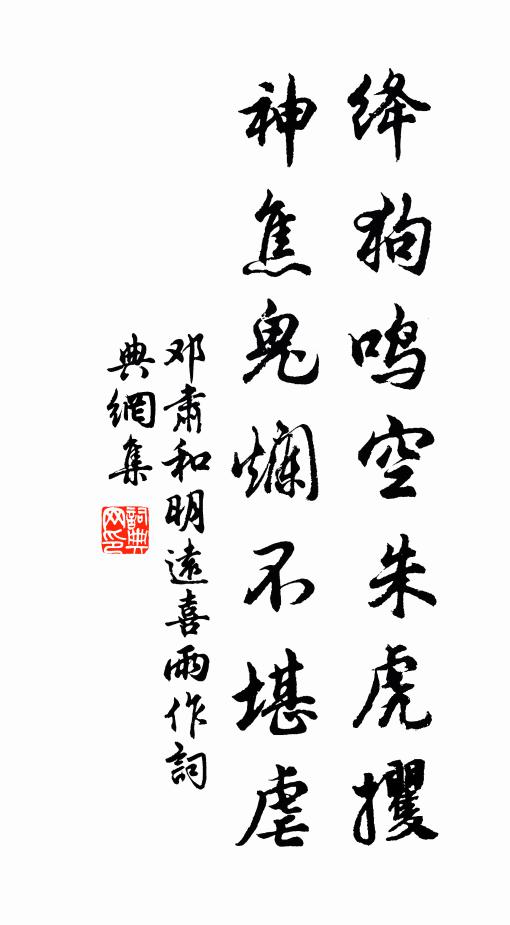 绛狗鸣空朱虎攫
神焦鬼爛不堪虐
邓肃和明遠喜雨作詞
典網集
詞典网印